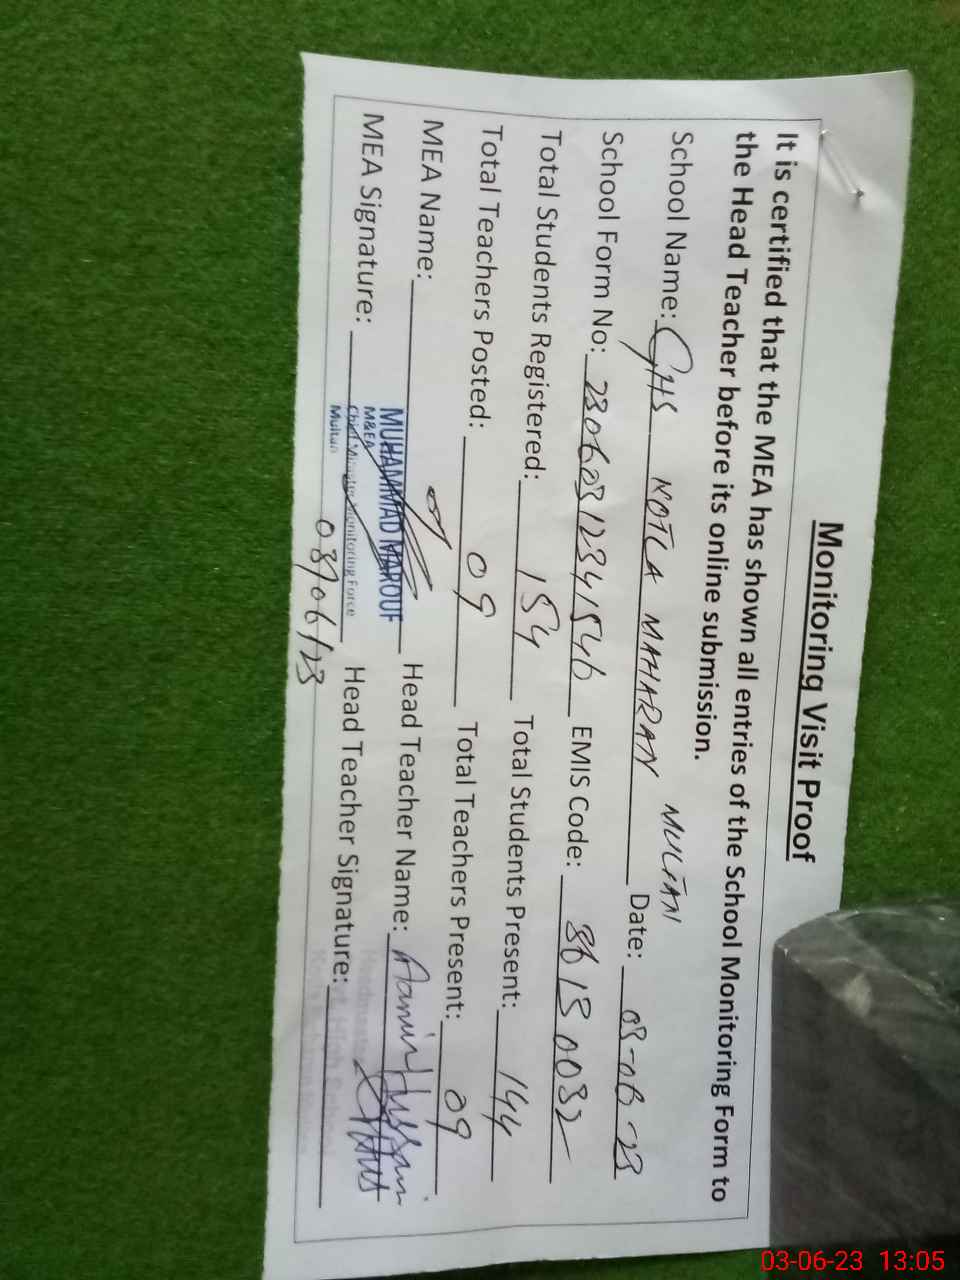 Monitoring Visit Proof
It is certified that the MEA has shown all entries of the School Monitoring Form to
the Head Teacher before its online submission.
School Name: GHS KOTLA MAHARAN MULTAN Date: 03-06-23
School Form No: 23060312341546 EMIS Code:
Total Students Registered: 154 Total Students Present: 144
Total Teachers Posted: 09 Total Teachers Present: 09
MEA Name: MUHAMMAD MAROUF Head Teacher Name: Aamir Hussain
M&EA
MEA Signature: Chief Minister Monitoring Force Head Teacher Signature:
Multan
03/06/23
03-06-23 13:05